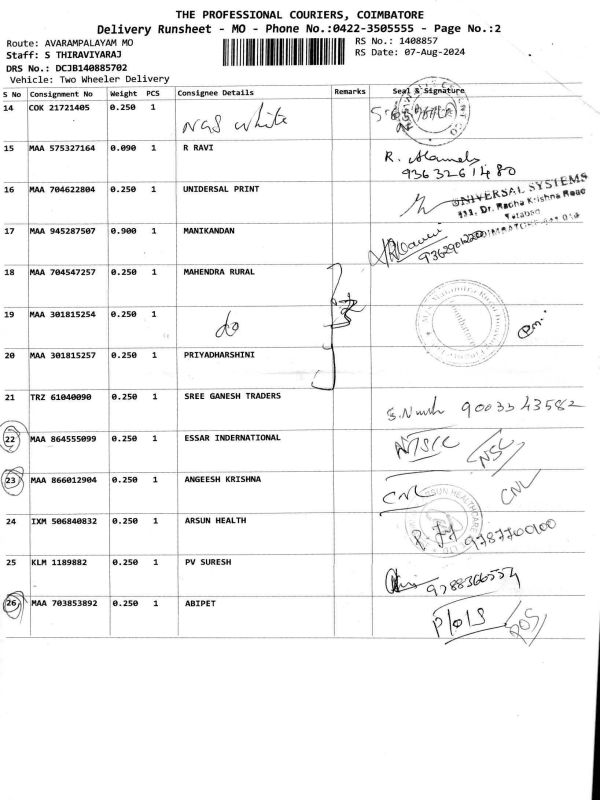 THE PROFESSIONAL COURIERS, COIMBATORE
Delivery Runsheet - MO - Phone No.:0422-3505555 - Page No.:2
Route: AVARAMPALAYAM MO RS No.: 1408857
Staff: S THIRAVIYARAJ RS Date: 07-Aug-2024
DRS No.: DCJB140885702
Vehicle: Two Wheeler Delivery
S No Consignment No Weight PCS Consignee Details Remarks Seal & Signature
14 COK 21721405 0.250 1
NGS White
15 MAA 575327164 0.090 1 R RAVI
9363261480
16 MAA 704622804 0.250 1 UNIDERSAL PRINT
UNIVERSAL SYSTEMS
111, Dr. Radha Krishna Road
Tatabad
17 MAA 945287507 0.900 1 MANIKANDAN
18 MAA 704547257 0.250 1 MAHENDRA RURAL
19 MAA 301815254 0.250 1
do
20 MAA 301815257 0.250 1 PRIYADHARSHINI
21 TRZ 61040090 0.250 1 SREE GANESH TRADERS
9003543582
22 MAA 864555099 0.250 1 ESSAR INDERNATIONAL
NSC
23 MAA 866012904 0.250 1 ANGEESH KRISHNA
CNL CNL
24 IXM 506840832 0.250 1 ARSUN HEALTH
ARSUN HEALTHCARE
9787700100
25 KLM 1189882 0.250 1 PV SURESH
9788366554
26 MAA 703853892 0.250 1 ABIPET